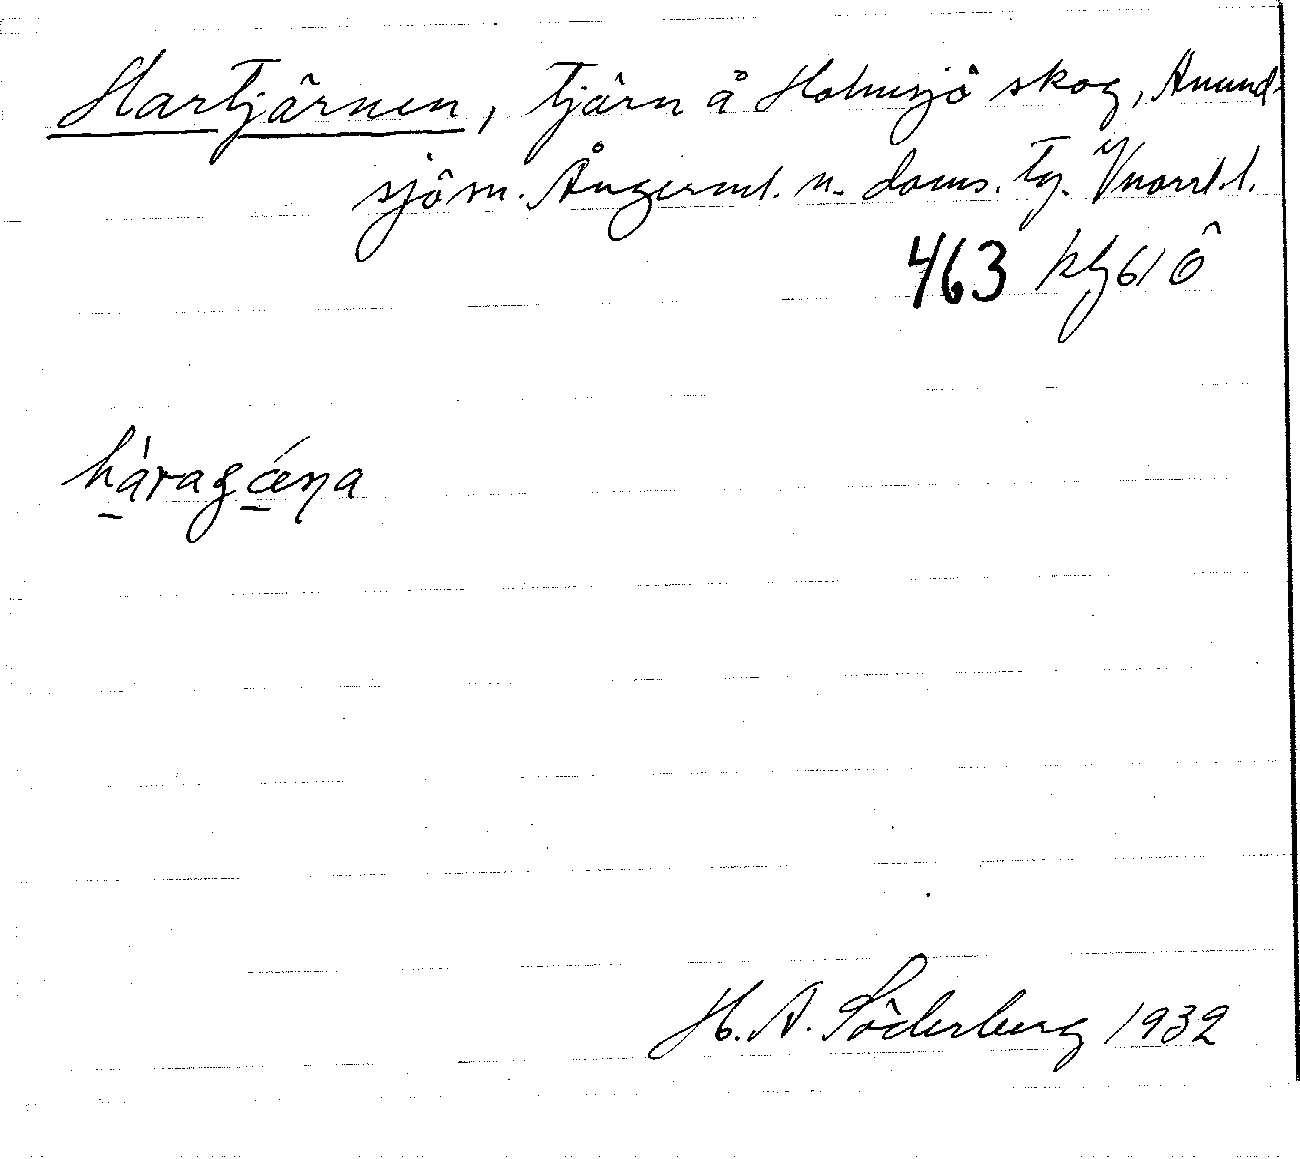 Hartjärnen, tjärn å Holmsjö skog, Anund-
sjö sn. Ångerml. n. doms. tg. Vnorrl. l.
463 kbl 61 Ö
h̀aragǽṇa
H. A. Söderberg 1932